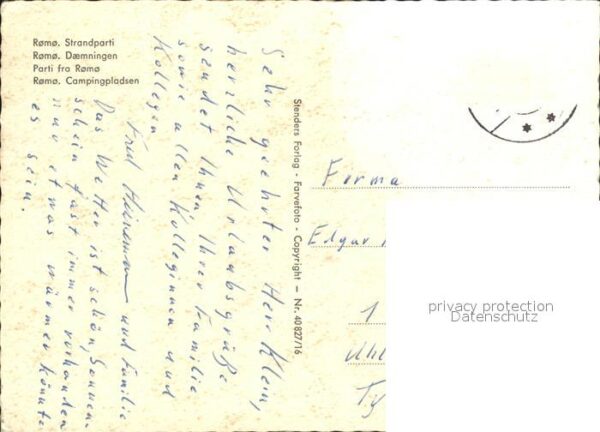 Rømø. Strandparti
Rømø. Dæmningen
Parti fra Rømø
Rømø. Campingpladsen
Sehr geehrter Herr Klein,
herzliche Urlaubsgrüße
sendet Ihnen, Ihrer Familie
sowie allen Kolleginnen und
Kollegen
und Familie
Das Wetter ist schön, Sonnen-
schein fast immer vorhanden
nur etwas wärmer könnte
es sein.
Stenders Forlag - Farvefoto - Copyright - Nr. 40827/16
Firma
Edgar
1
privacy protection
Datenschutz